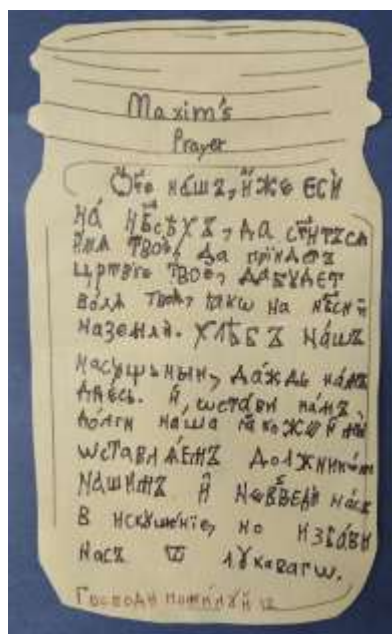 Maxim's
Prayer
Ѻ҃че на́шъ, и҆́же є҆сѝ
на́ нб҃сѣ́хъ, да ст҃и́тъсѧ
и҆́мѧ твоѐ, да прїи́детъ
црⷭ҇твїе твоѐ, да бꙋ́дет
во́лѧ твоѧ̀, ꙗ҆́кѡ на нб҃сѝ и҆
на землѝ. Хлѣ́бъ на́шъ
насꙋщьныи, да́ждь на́мъ
дне́сь. И҆, ѡ҆ста́ви на́мъ
до́лги наша ꙗ҆́коже и҆ мы̀
ѡ҆ставлѧ́емъ должникѡ́мъ
на́шимъ и҆ не введѝ на́съ
в искꙋше́нїе, но и҆зба́ви
насъ ѿ лꙋ́кавагѡ.
Господи поми́лꙋй 12